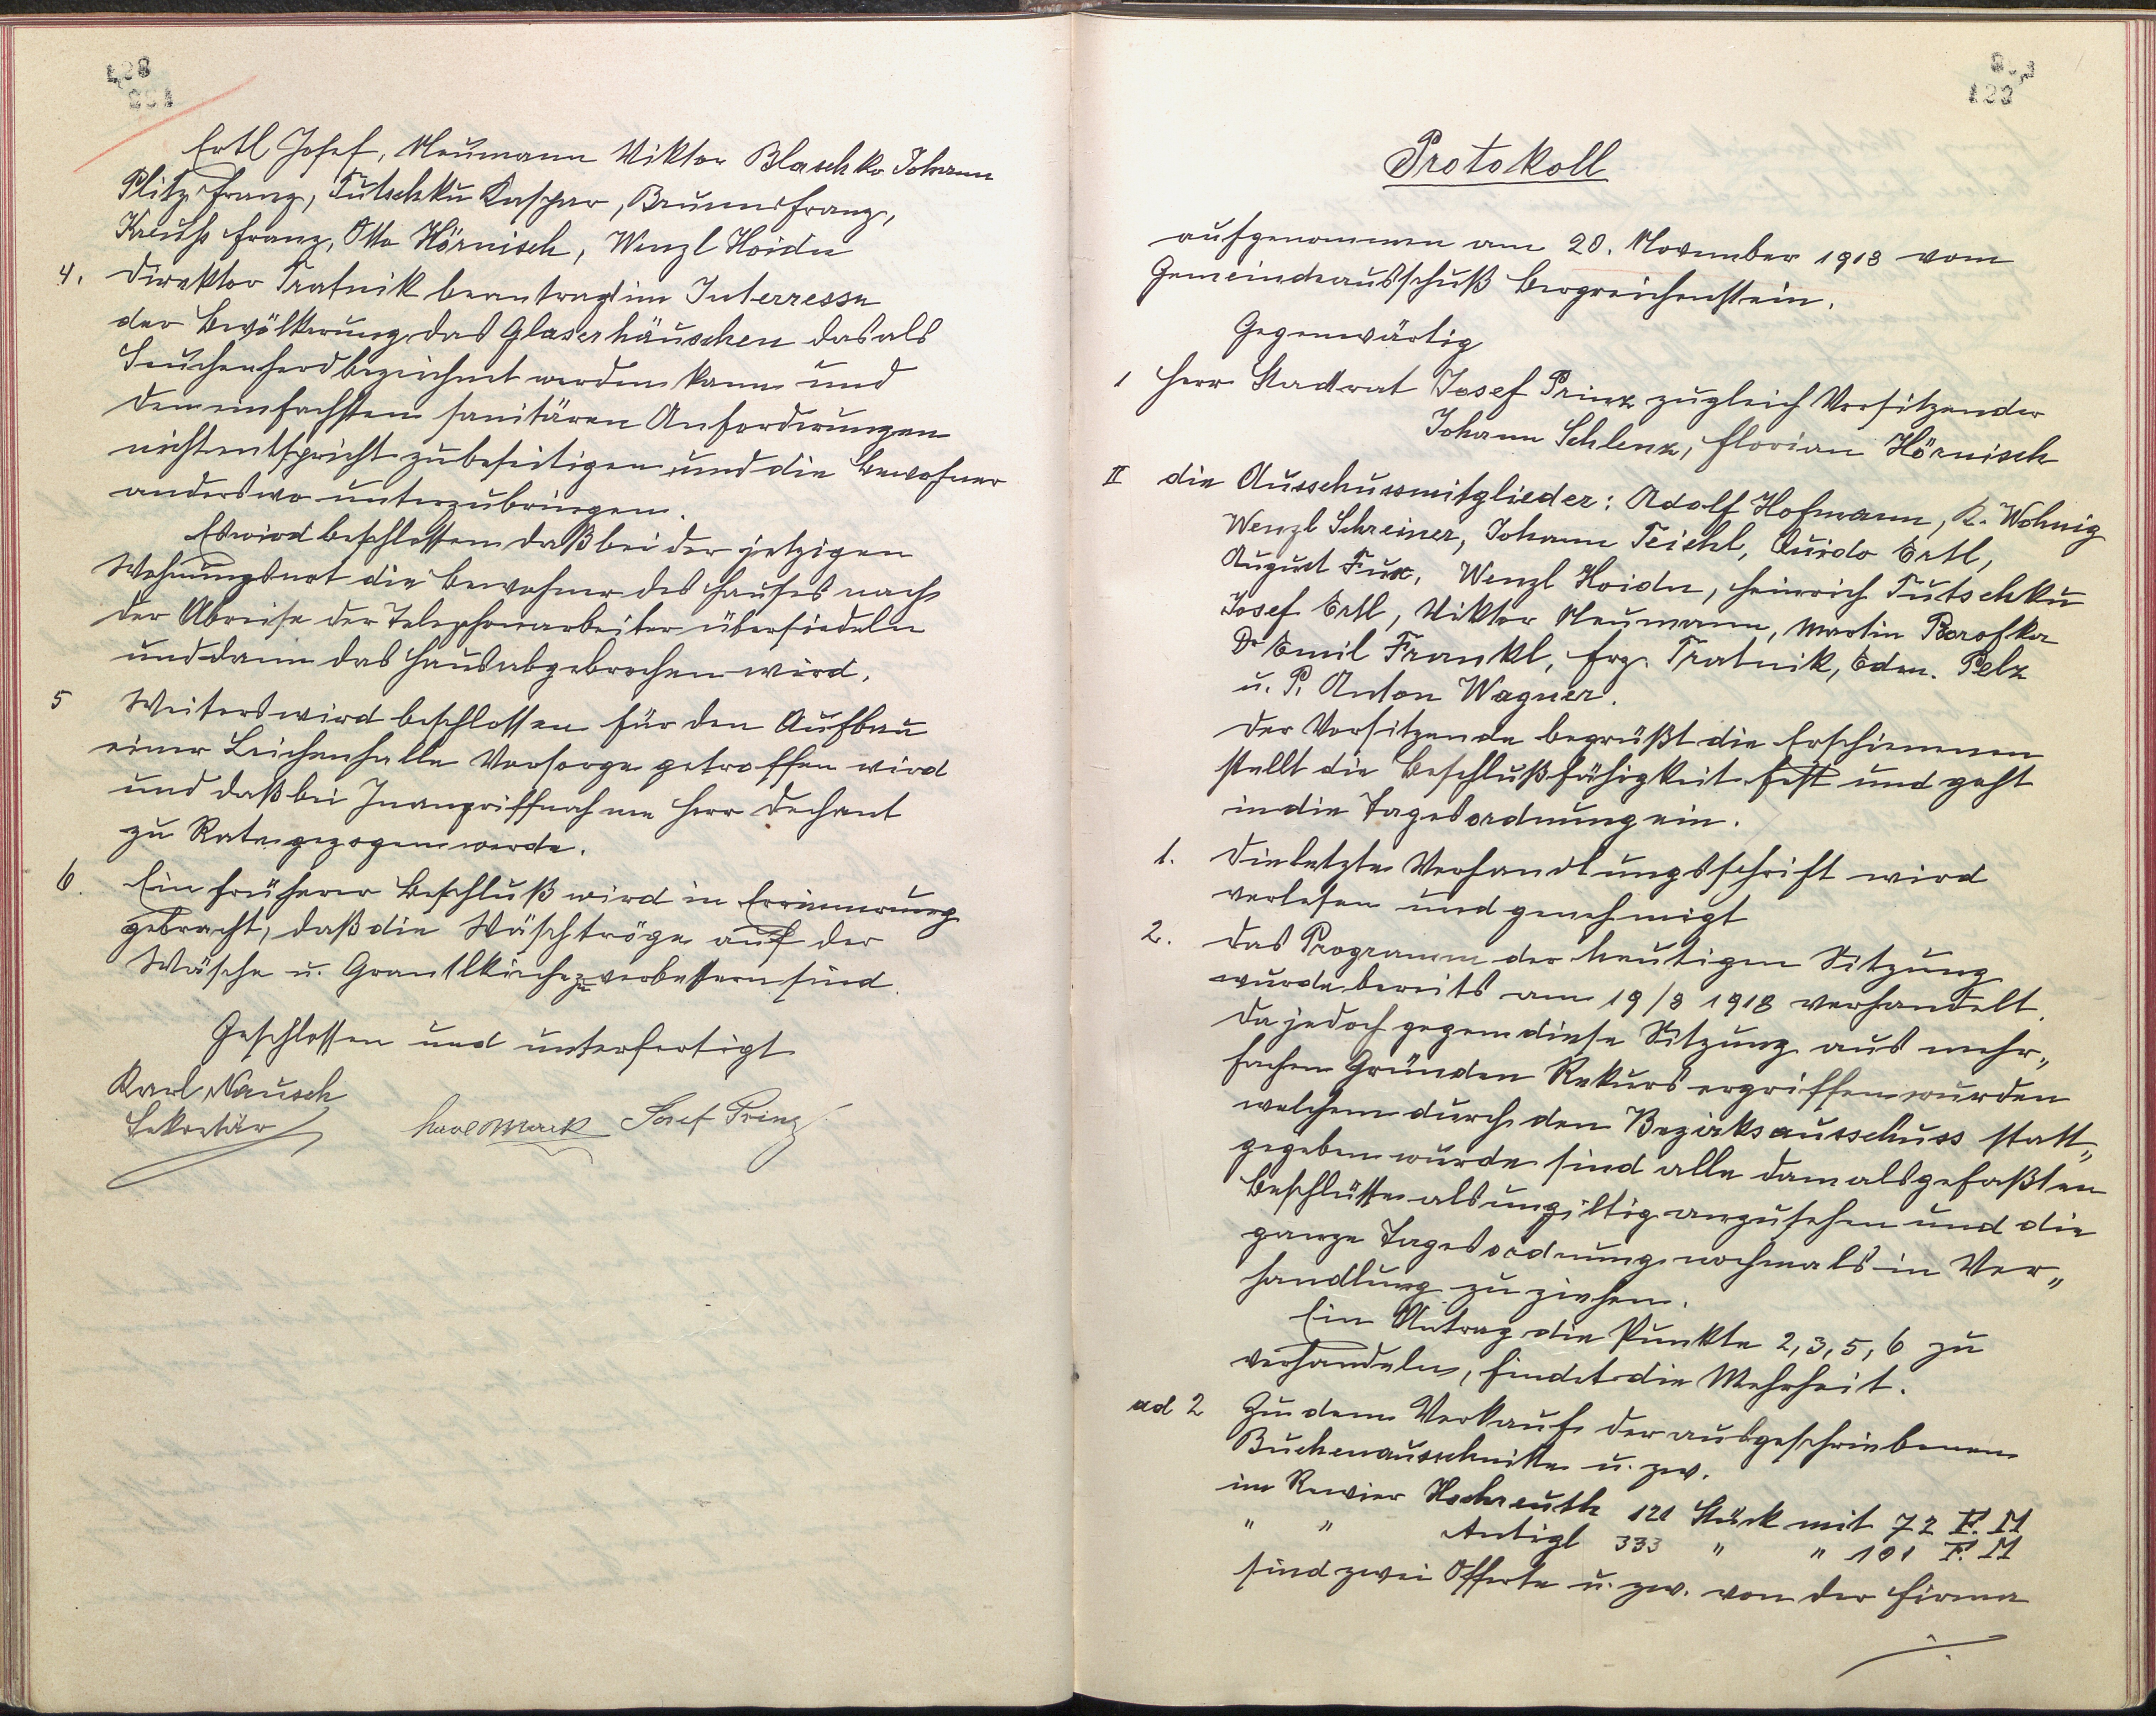 128
Ertl Josef, Neumann Viktor Blaschko Johann
Plitz Franz, Tutschku Kaspar, Brunner Franz,
Kreuhs Franz, Otto Hörnisch, Wenzl Hoidn
4. Direktor Tratnik beantragt im Interresse
der Bevölkerung das Glaserhäuschen das als
Seuchenherd bezeichnet werden kann und
den einfachsten sanitären Anforderungen
nicht entspricht zu beseitigen und die Bewohner
anderswo unterzubringen.
Es wird beschlossen daß bei der jetzigen
Wohnungsnot die Bewohner des Hauses nach
der Abreise der Telephonarbeiter übersiedeln
und dann das Haus abgebrochen wird.
5 Weiters wird beschlossen für den Aufbau
einer Leichenhalle Vorsorge getroffen wird
und daß bei Inangriffnahme Herr Dechant
zu Rate gezogen werde.
6. Ein früherer Beschluß wird in Errinnerung
gebracht, daß die Waschtröge auf der
Wäsche u. zu verbessern sind.
Geschlossen und unterfertigt
Karl Nausch
Sekretär Josef Prinz
Protokoll
aufgenommen am 20. November 1918 vom
Gemeindeausschuß Bergreichenstein.
Gegenwärtig
1 Herr Stadtrat Josef Prinz zugleich Vorsitzender
Johann Schlenz, Florian Hörnisch
II die Ausschussmitglieder: Adolf Hofmann, K. Wohnig
Wenzl Schreiner, Johann Teichl, Quido Ertl,
August Fux, Wenzl Hoidn, Heinrich Tutschku
Josef Ertl, Viktor Neumann, Martin Borofka
Dr Emil Frankl, Frz. Tratnik, Edm. Pelz
u. P. Anton Wagner.
Der Vorsitzende begrüßt die Erschienenen
stellt die Beschlußfähigkeit fest und geht
in die Tagesordnung ein.
1. Die letzte Verhandlungsschrift wird
verlesen und genehmigt
2. Das Programm der heutigen Sitzung
wurde bereits am 19/8 1918 verhandelt.
Da jedoch gegen diese Sitzung aus mehr„
fachen Gründen Rekurs ergriffen wurden
welchem durch den Bezirksausschuss statt„
gegeben wurde sind alle damals gefaßten
Beschlüsse als ungiltig anzusehen und die
ganze Tagesordnung nochmals in Ver„
handlung zu ziehen.
Ein Antrag die Punkte 2, 3, 5, 6 zu
verhandeln, findet die Mehrheit.
ad 2 Zu dem Verkaufe der ausgeschriebenen
Buchenausschnitte u. zw.
im Revier Hochreuth 121 Stück mit 72 F. M
" " Antigl 333 " " 101 F. M
sind zwei Offerte u. zw. von der Firma
./.